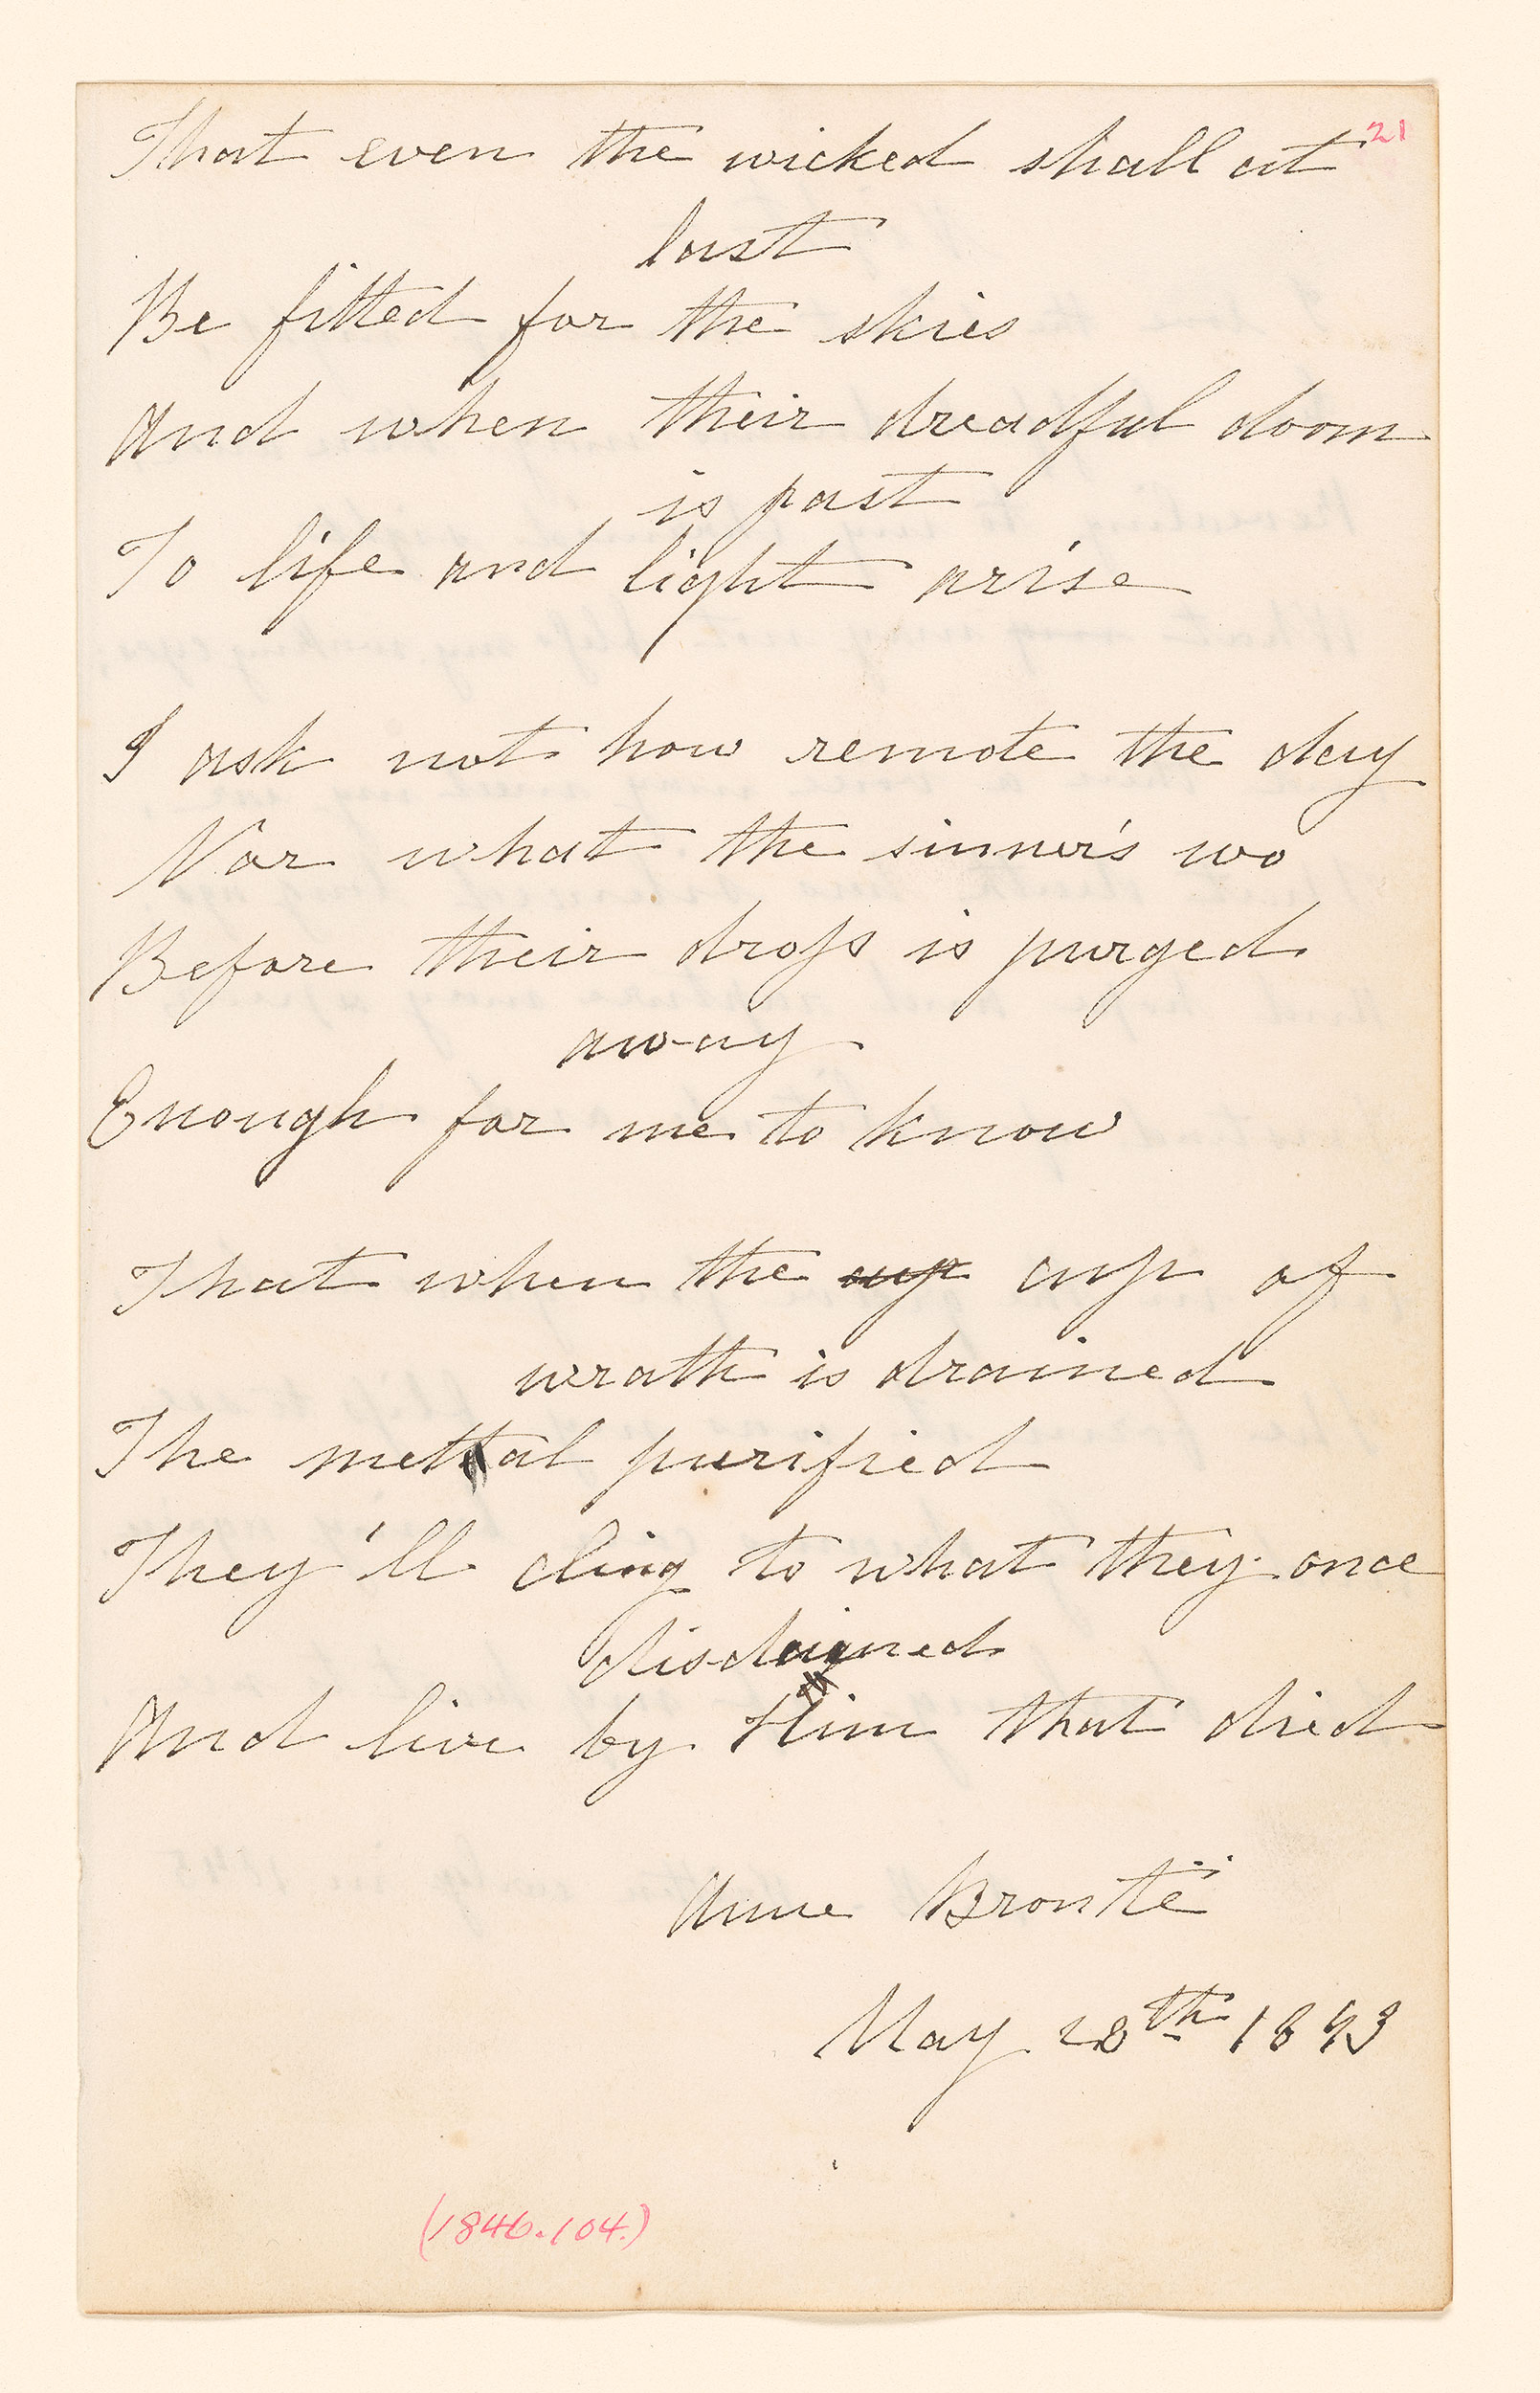 That even the wicked shall at
21
last
Be fitted for the skies
And when their dreadful doom
is past
To life and light arise
I ask not how remote the day
Nor what the sinner's wo
Before their dross is purged
away
Enough for me to know
That when the cup cup of
wrath is drained
The mettal purified
They'll cling to what they once
disdained
And live by Him that died
Anne Brontë
May 28th 1843
(1846.104.)